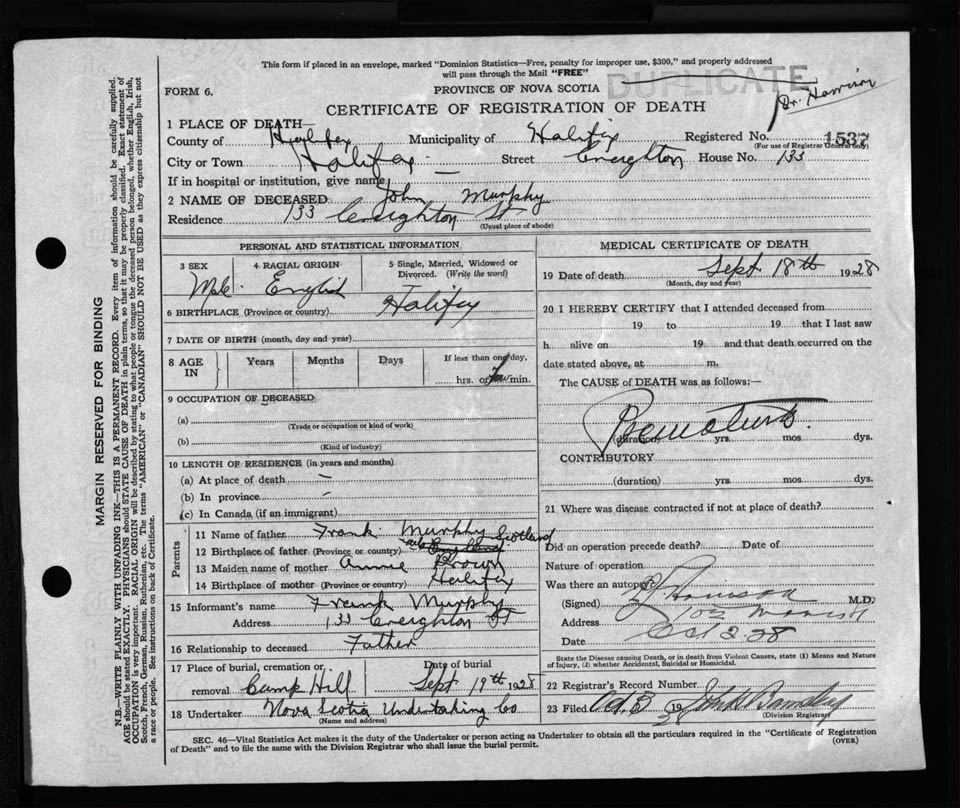 This form if placed in an envelope, marked "Dominion Statistics—Free, penalty for improper use, $300," and properly addressed
will pass through the Mail "FREE"
DUPLICATE
FORM 6.
PROVINCE OF NOVA SCOTIA
Dr. Harrison
CERTIFICATE OF REGISTRATION OF DEATH
1 PLACE OF DEATH—
County of Halifax Municipality of Halifax Registered No. 1537
(For use of Registrar General only)
City or Town Halifax — Street Creighton House No. 133
If in hospital or institution, give name
2 NAME OF DECEASED John Murphy
Residence 133 Creighton St
(Usual place of abode)
PERSONAL AND STATISTICAL INFORMATION
3 SEX 4 RACIAL ORIGIN 5 Single, Married, Widowed or
Divorced. (Write the word)
Male English
6 BIRTHPLACE (Province or country) Halifax
7 DATE OF BIRTH (month, day and year)
8 AGE IN Years Months Days If less than one day,
hrs. or few min.
9 OCCUPATION OF DECEASED:
(a)
(Trade or occupation or kind of work)
(b)
(Kind of industry)
10 LENGTH OF RESIDENCE (in years and months)
(a) At place of death —
(b) In province —
(c) In Canada (if an immigrant)
Parents
11 Name of father Frank Murphy
12 Birthplace of father (Province or country) England Scotland
13 Maiden name of mother Annie Brown
14 Birthplace of mother (Province or country) Halifax
15 Informant's name Frank Murphy
Address 133 Creighton ST
16 Relationship to deceased Father
17 Place of burial, cremation or Date of burial
removal Camp Hill Sept 19th 1928
18 Undertaker Nova Scotia Undertaking Co
(Name and address)
MEDICAL CERTIFICATE OF DEATH
19 Date of death Sept 18th 1928
(Month, day and year)
20 I HEREBY CERTIFY that I attended deceased from
19 to 19 that I last saw
h alive on 19 and that death occurred on the
date stated above, at m.
The CAUSE of DEATH was as follows:—
Premature
(duration) yrs mos dys.
CONTRIBUTORY
(duration) yrs mos dys.
21 Where was disease contracted if not at place of death?
Did an operation precede death? Date of
Nature of operation
Was there an autopsy?
(Signed) Harrison M.D.
Address
Date Oct 2. 28
State the Disease causing Death, or in death from Violent Causes, state (1) Means and Nature
of Injury, (2) whether Accidental, Suicidal or Homicidal.
22 Registrar's Record Number
23 Filed Oct. 3 1928 John
(Division Registrar)
SEC. 46—Vital Statistics Act makes it the duty of the Undertaker or person acting as Undertaker to obtain all the particulars required in the "Certificate of Registration
of Death" and to file the same with the Division Registrar who shall issue the burial permit. (OVER)
MARGIN RESERVED FOR BINDING
N.B.—WRITE PLAINLY WITH UNFADING INK—THIS IS A PERMANENT RECORD. Every item of information should be carefully supplied.
AGE should be stated EXACTLY. PHYSICIANS should STATE CAUSE OF DEATH in plain terms, so that it may be properly classified. Exact statement of
OCCUPATION is very important. RACIAL ORIGIN will be described by stating to what people or tongue the deceased person belonged, whether English, Irish,
Scotch, French, German, Russian, Ruthenian, etc. The terms "AMERICAN" or "CANADIAN" SHOULD NOT BE USED as they express citizenship but not
a race or people. See instructions on back of Certificate.